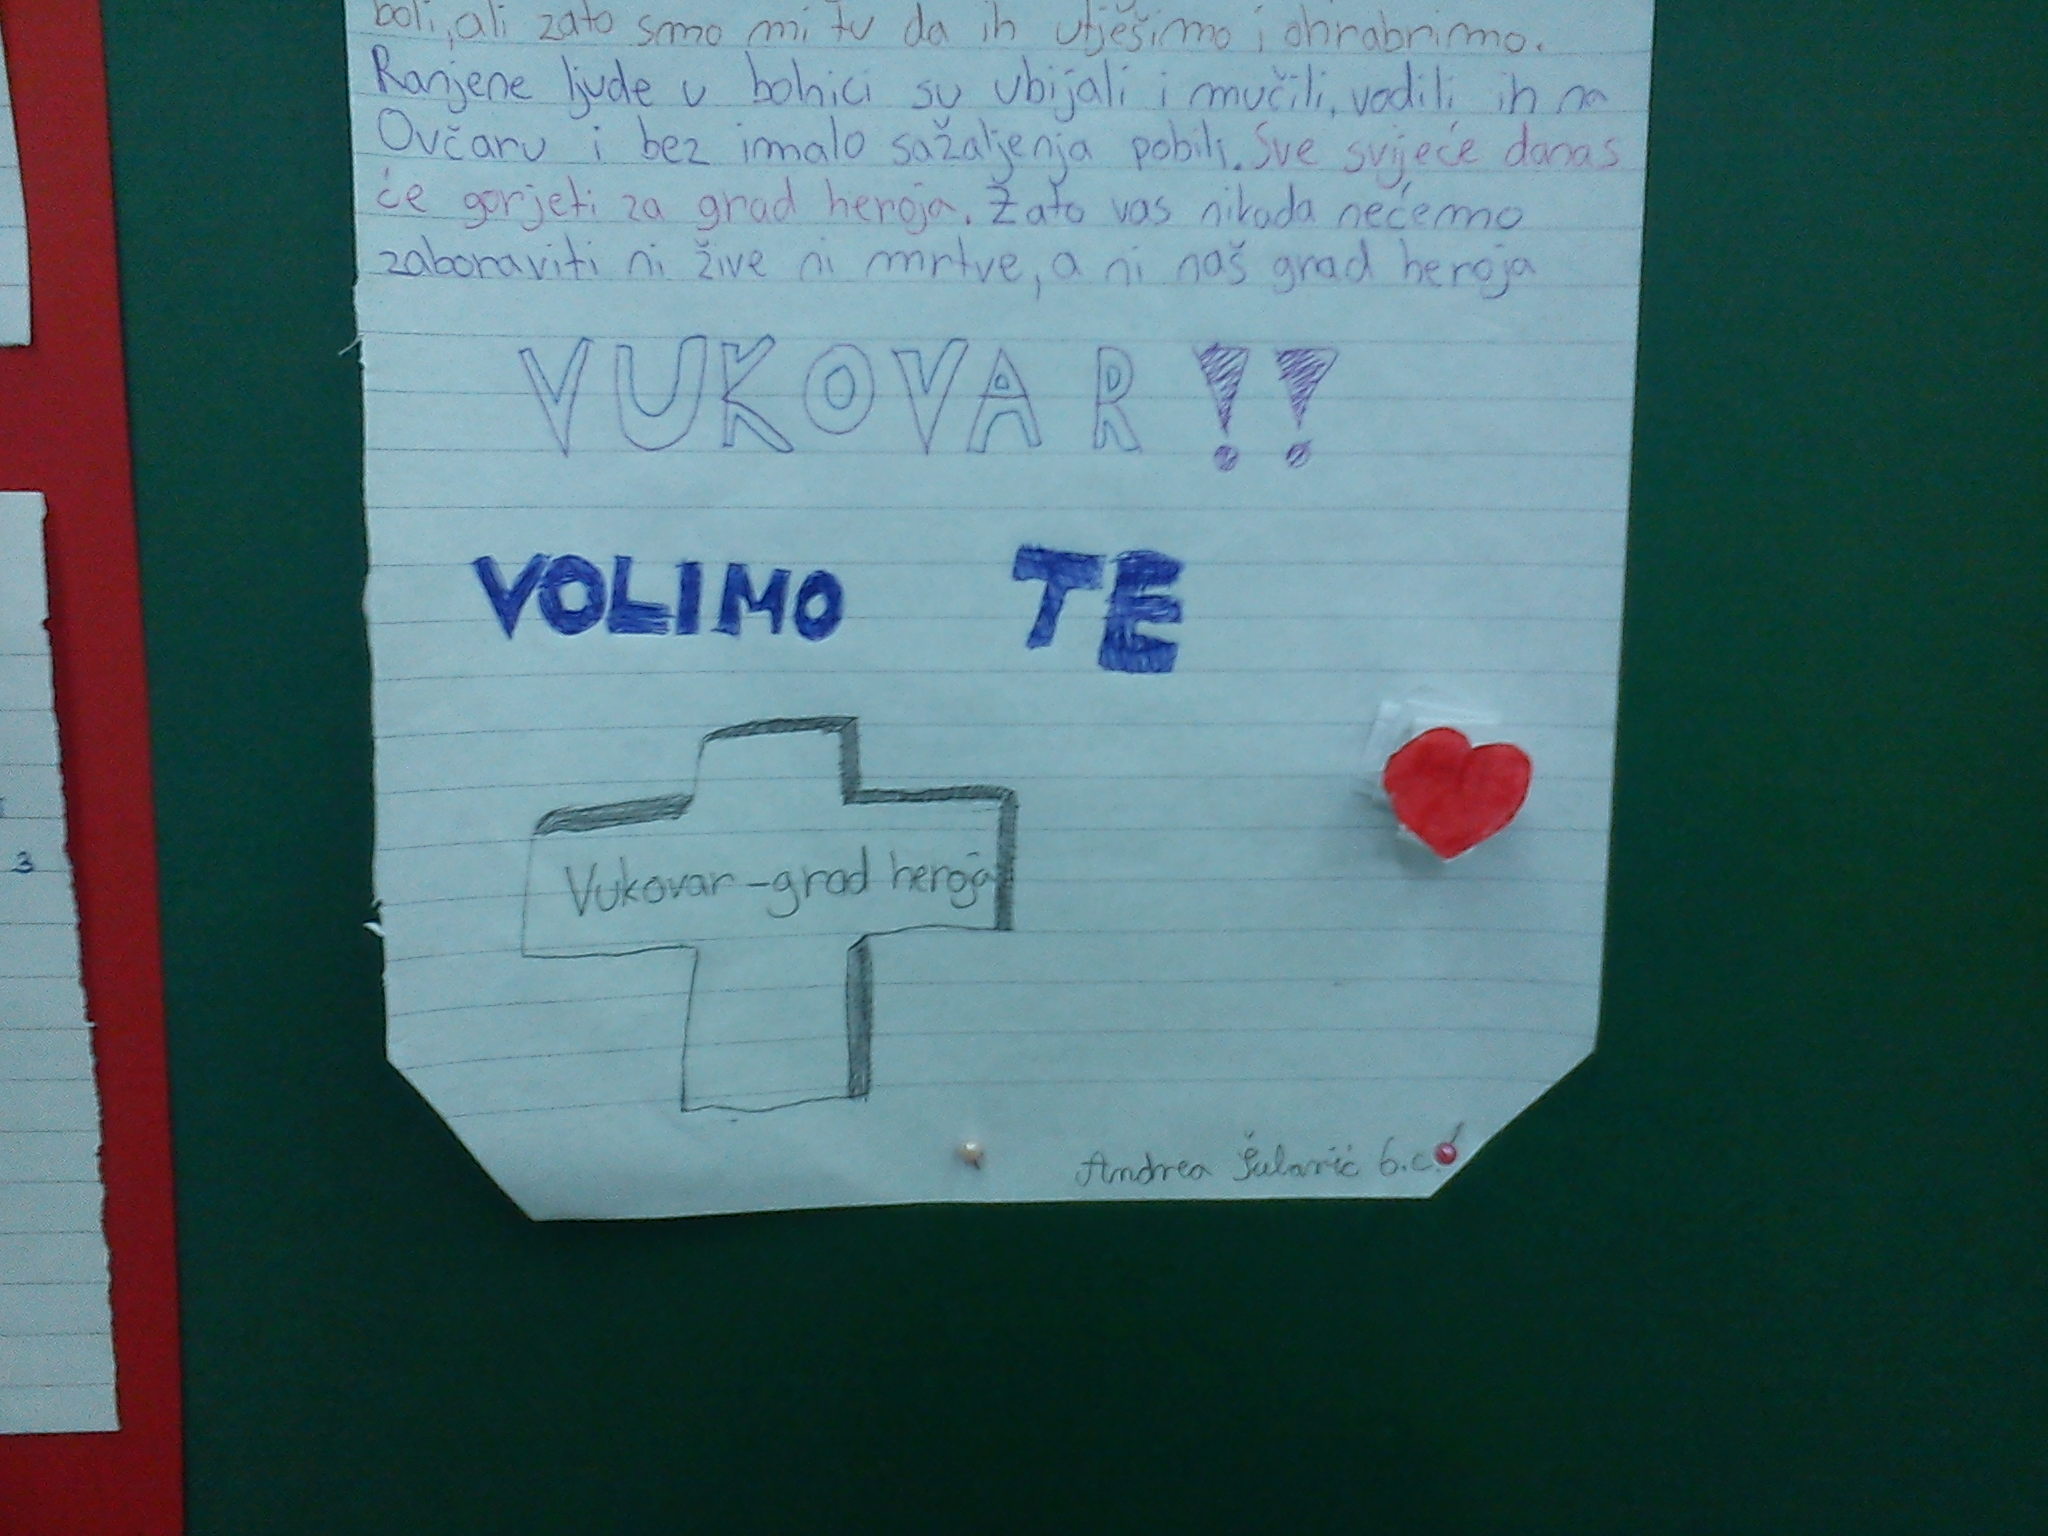 boli, ali zato smo mi tu da ih utješimo i ohrabrimo.
Ranjene ljude u bolnici su ubijali i mučili, vodili ih na
Ovčaru i bez imalo sažaljenja pobili. Sve svijeće danas
će gorjeti za grad heroja. Zato vas nikada nećemo
zaboraviti ni žive ni mrtve, a ni naš grad heroja
VUKOVAR!!
VOLIMO TE
Vukovar-grad heroja
Andrea Šularić 6.c
3